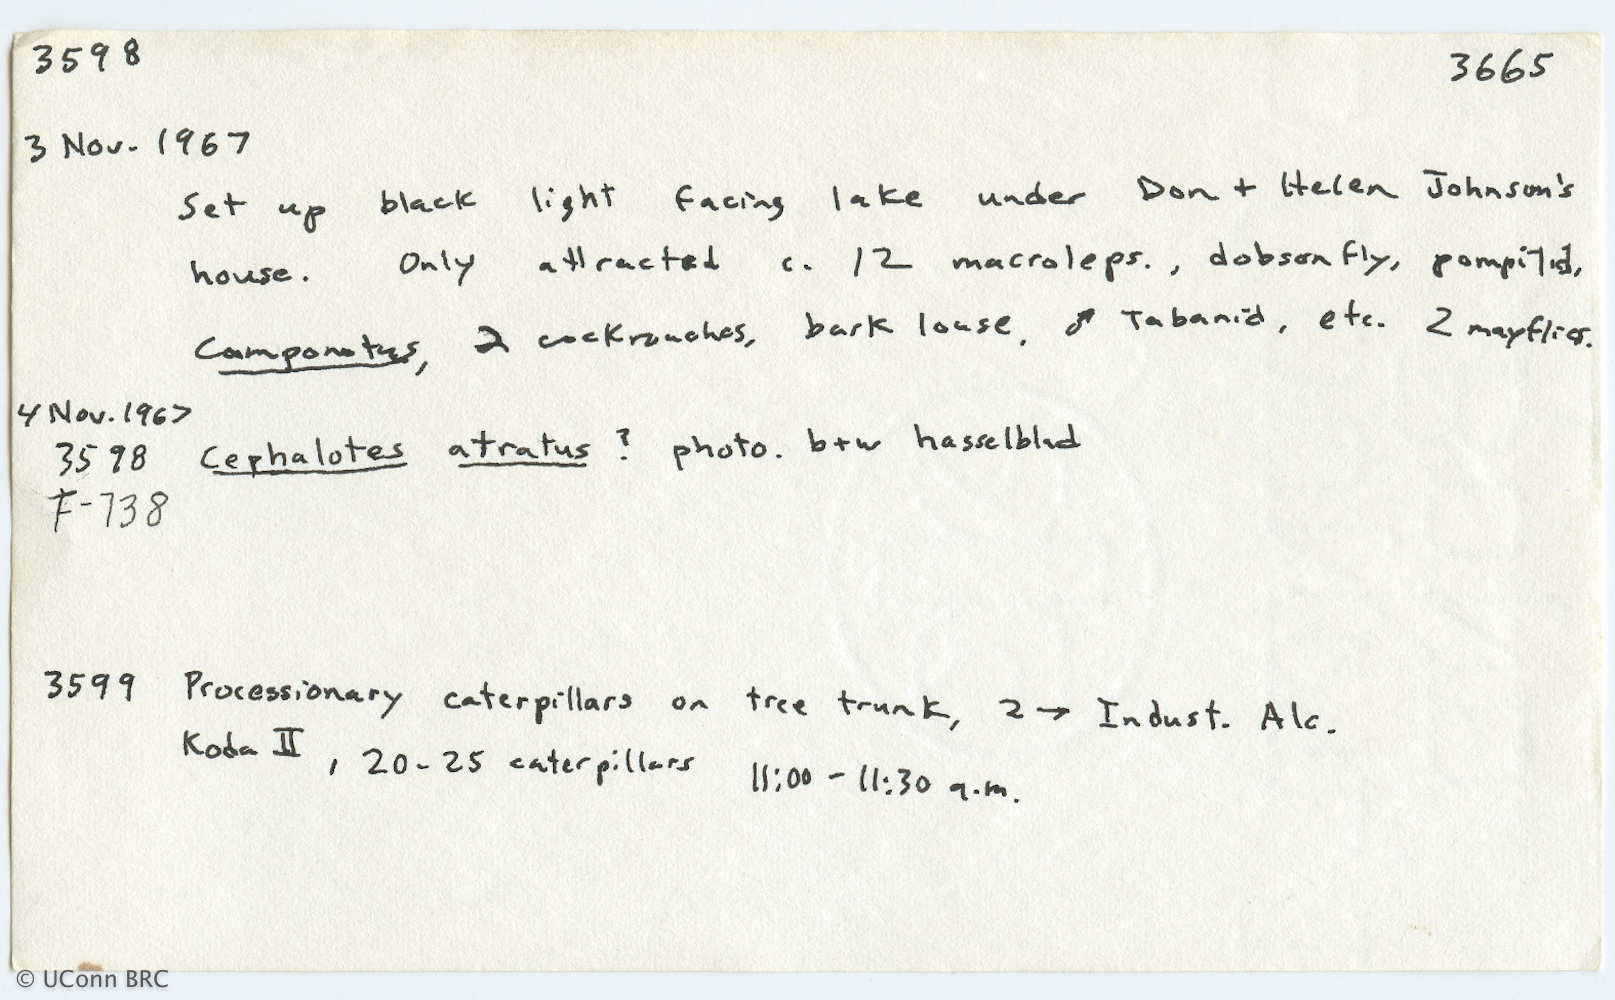 3598 3665
3 Nov. 1967
Set up black light facing lake under Don + Helen Johnson's
house. Only attracted c. 12 macroleps., dobsonfly, pompilid,
Camponotus, 2 cockroaches, bark louse, ♂ Tabanid, etc. 2 mayflies.
4 Nov. 1967
3598 Cephalotes atratus ? photo. b+w hasselblad
F-738
3599 Processionary caterpillars on tree trunk, 2 → Indust. Alc.
Koda II, 20-25 caterpillars 11:00 - 11:30 a.m.
© UConn BRC